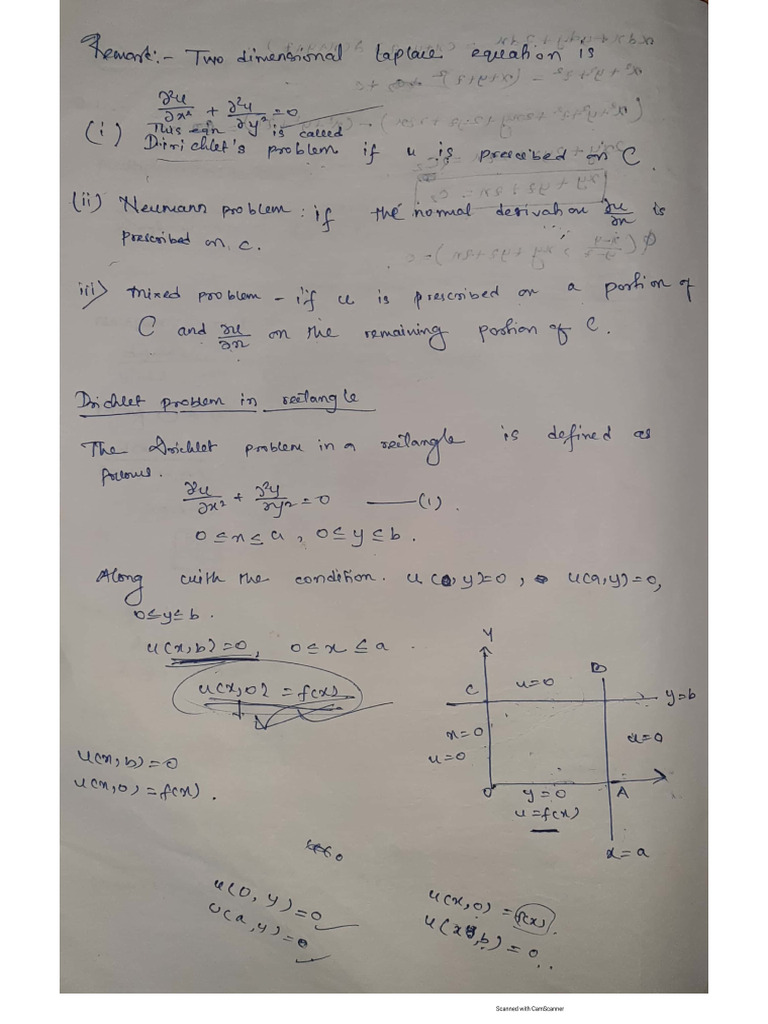 Remark:- Two dimensional Laplace equation is
∂²u/∂x² + ∂²u/∂y² = 0
(i) This eqn is called
Dirichlet's problem if u is prescribed on C.
(ii) Neumann problem : if the normal derivation ∂u/∂n is
prescribed on C.
iii) Mixed problem - if u is prescribed on a portion of
C and ∂u/∂n on the remaining portion of C.
Drichlet problem in rectangle
The Drichlet problem in a rectangle is defined as
follows.
∂²u/∂x² + ∂²u/∂y² = 0 —— (1).
0 ≤ x ≤ a , 0 ≤ y ≤ b .
Along with the condition. u(0, y) = 0 , u(a, y) = 0,
0 ≤ y ≤ b .
u(x, b) = 0, 0 ≤ x ≤ a .
u(x, 0) = f(x)
Y
B
C
u = 0
y = b
x = 0
u = 0
u = 0
O
y = 0
A
u = f(x)
x = a
u(x, b) = 0
u(x, 0) = f(x) .
u(0, y) = 0
u(a, y) = 0
u(x, 0) = f(x) .
u(x, b) = 0 ..
Scanned with CamScanner